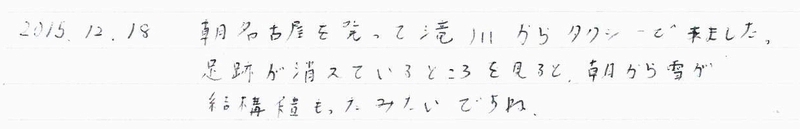 2015.12.18 朝名古屋を発って滝川からタクシーで来ました。
足跡が消えているところを見ると、朝から雪が
結構積もったみたいですね。